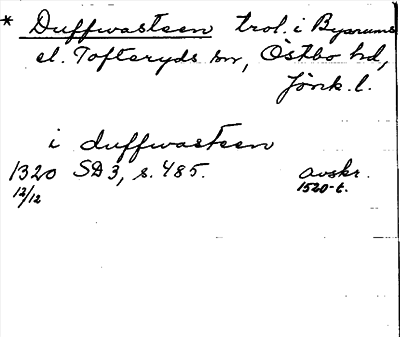 * Duffwasteen trol. i Bysrums
el. Tofteryds sn, Östbo hd,
Jönk. l.
i duffwasteen
1320 SD 3, s. 485. avskr.
12/12 1520-t.